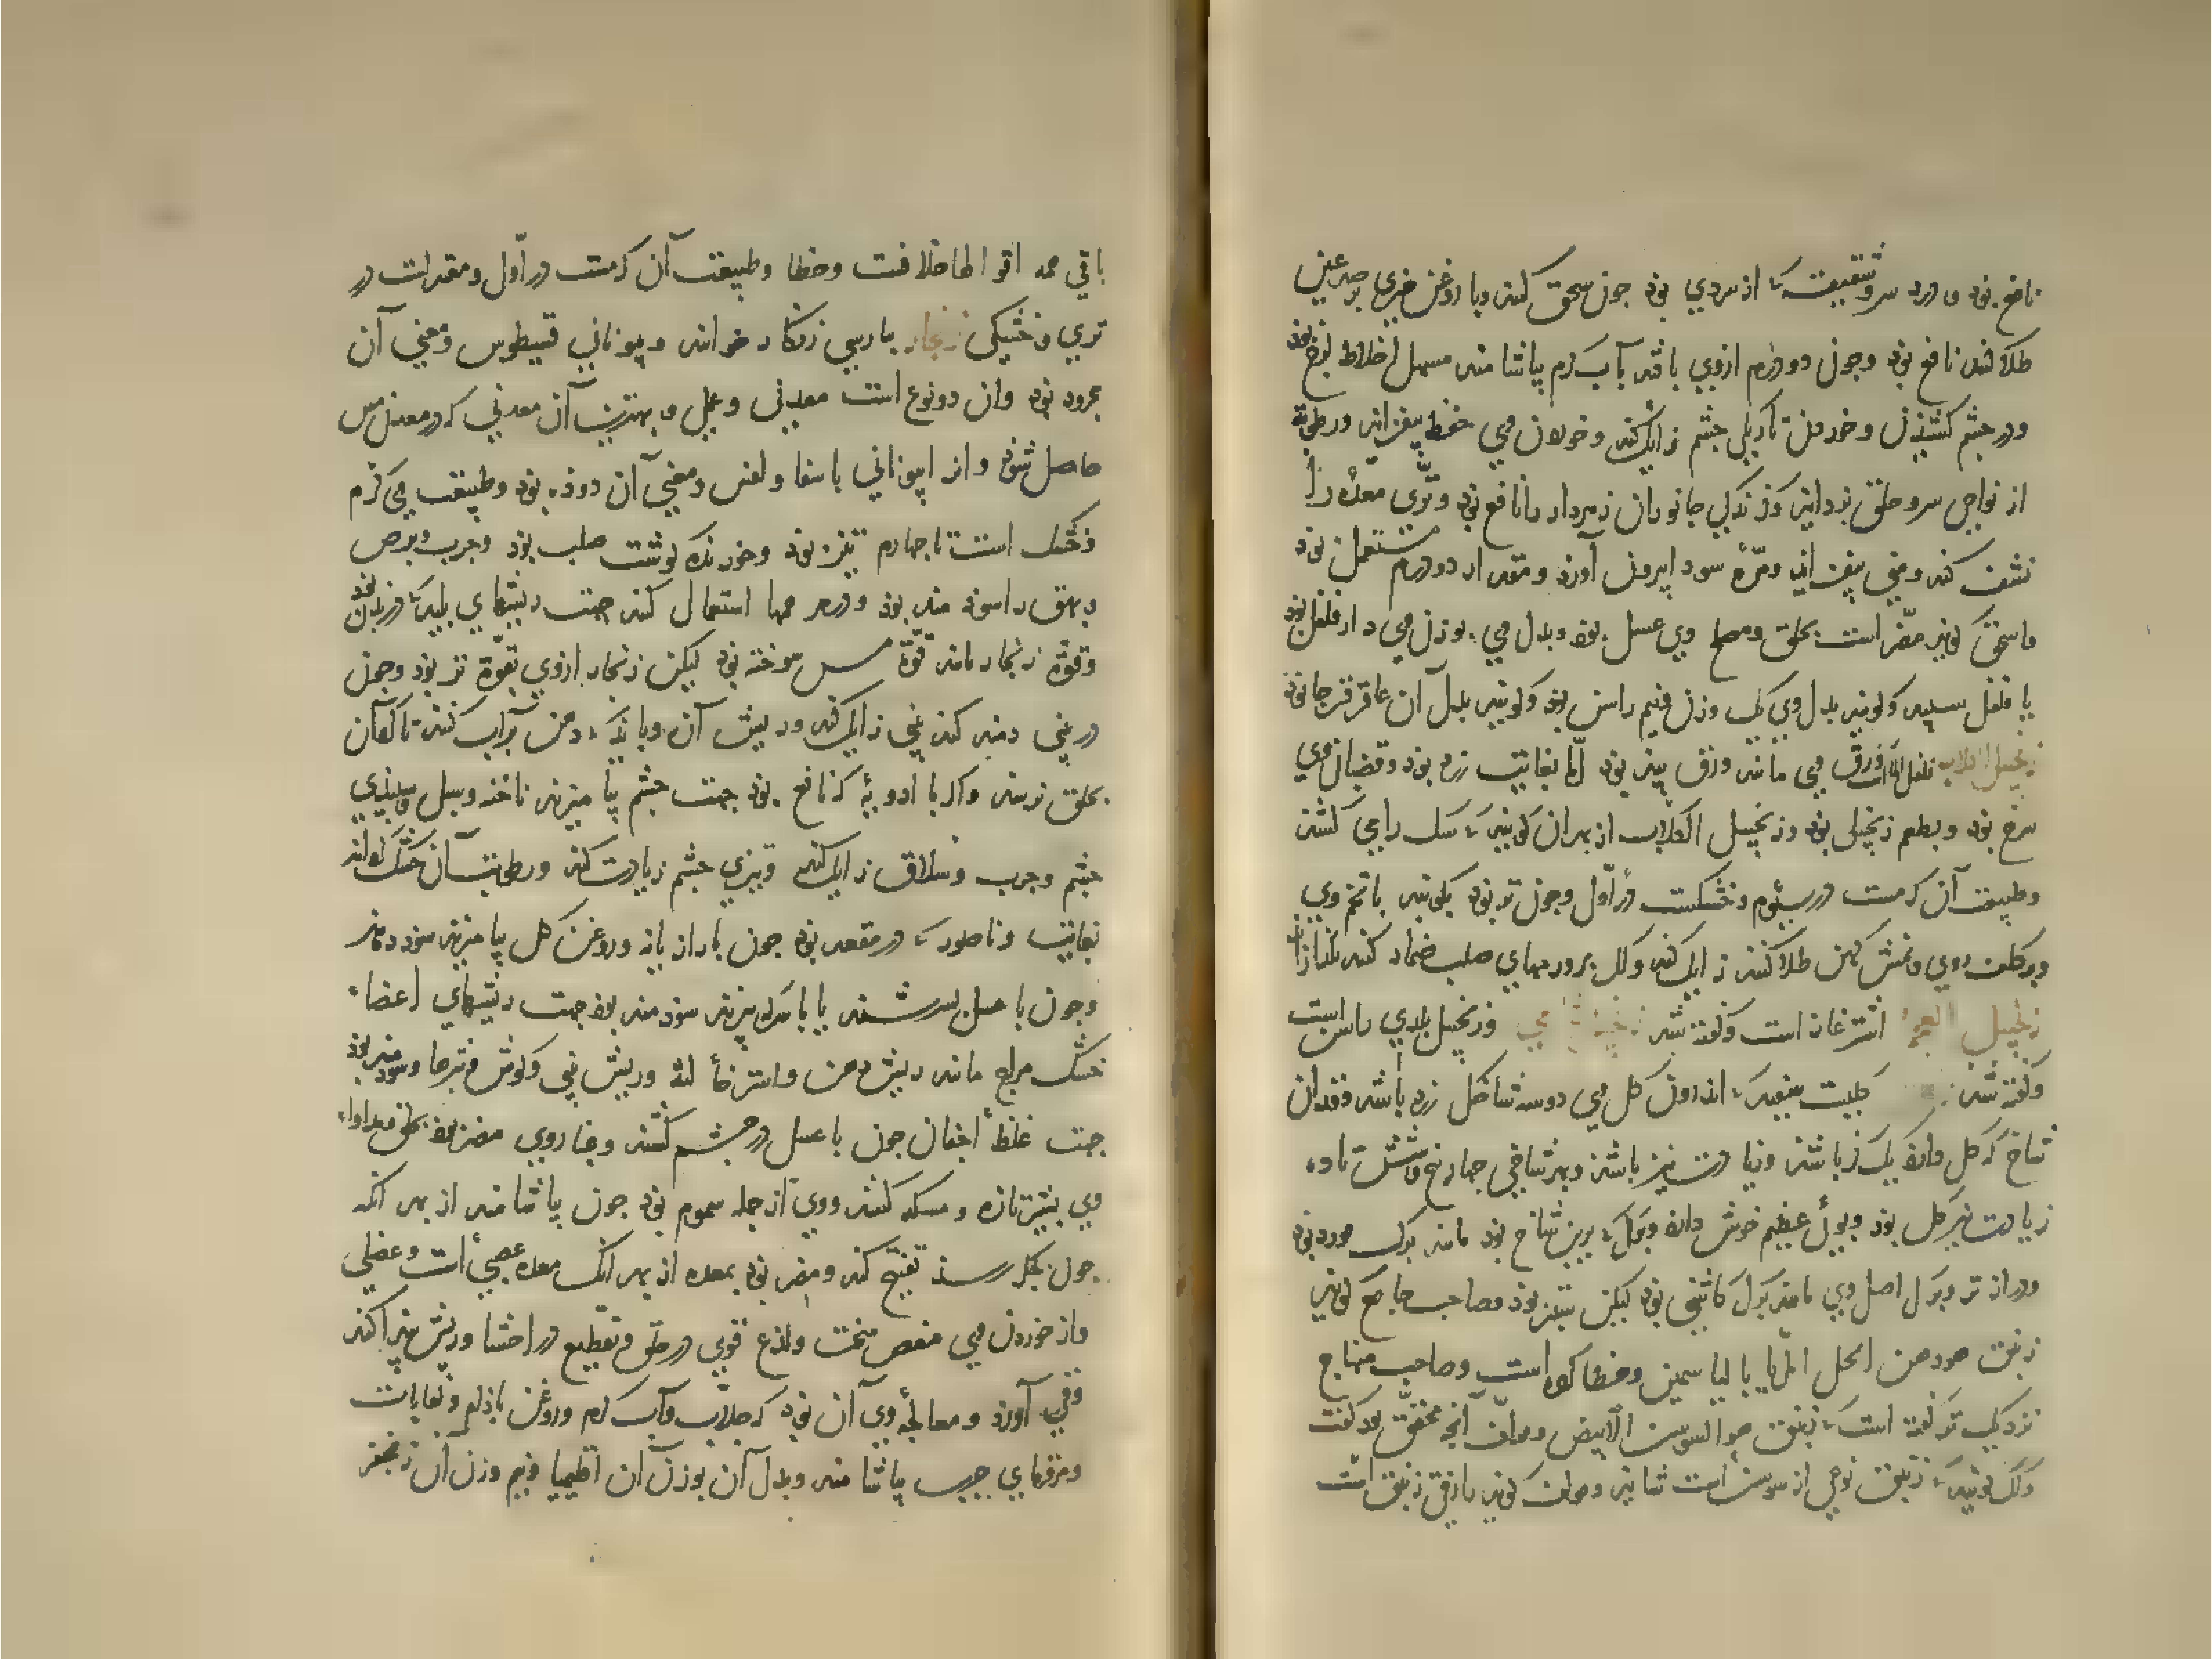 نافع بود و درد سر و شقیقه که از سردی بود چون سحق کنند و با روغن خیری بر صدغین
طلا کنند نافع بود و چون دو درم ازوی با قند بآب گرم بیاشامند مسهل اخلاط لزج بود
و در چشم کشیدن و خوردن تاریکی چشم زایل کند و خوردن وی حفظ بیفزاید و رطوبة
از نواحی سر و حلق بزداید و گزندگی جانوران زهردار را نافع بود و تری معده را
نشف کند و منی بیفزاید و مرّهٔ سودا بیرون آورد و مقدار دو درم مستعمل بود
و اسحق گوید مضر است بحلق و مصلح وی عسل بود و بدل وی بوزن وی دارفلفل بود
یا فلفل سپید و گویند بدل وی یک وزن و نیم راسن بود و گویند بدل آن عاقرقرحا بود
زنجبیل الکلاب ورق وی مانند ورق بید بود امّا بغایت زرد بود و قضبان وی
سرخ بود و بطعم زنجبیل بود و زنجبیل الکلاب از بهر آن گویند که سگ را می کشد
و طبیعت آن گرمست در سئوم و خشکست در اوّل و چون تر بود بکوبند با تخم وی
و بر کلف روی و نمش کهن طلا کنند زایل کند و گل بر ورمهای صلب ضماد کنند بگدازاند
زنجبیل العجم اشترغاز است و گفته شد زنجبیل شامی و زنجبیل بلدی راسن است
و گفته شد گلیست سفید که اندرون گل وی دو سه شاخ گل زرد باشد و قد آن
شاخ که گل دارد یک گز باشد و زیادت نیز باشد و بهر شاخی چهار پنج و شش تا ده
زیادت نیز گل بود و بوئ عظیم خوش دارد و برگ که برین شاخ بود مانند برگ مورد بود
و درازتر و برگ اصل وی مانند برگ کاسنی بود لیکن سبز بود و صاحب جامع گوید
زنبق هو دهن الحل المربا بالیاسمین و خطا کرده است و صاحب منهاج
نزدیک تر گفته است که زنبق هو السوسن الابیض و مولف آنچه محقق بود گفت
و لک گوید که زنبق نوعی از سوسن است و مولف گوید رازقی زنبق است
باقی همه اقوالها خلافست و خطا و طبیعت آن گرمست در اوّل و معتدلست در
تری و خشکی زنجار بپارسی زنگار خوانند و بیونانی قسیطوس و معنی آن
مجرود بود و آن دو نوع است معدنی و عملی و بهترین آن معدنی که در معدن مس
حاصل شود و آنرا بیونانی و معنی آن دود بود و طبیعت وی گرم
و خشک است تا چهارم تیز بود و خورنده گوشت صلب بود و جرب و برص
و بهق را سودمند بود و در مرهمها استعمال کنند جهت ریشهای پلید که در بدن بود
و قوّة زنجار مانند قوّة مس سوخته بود لیکن زنجار ازوی بقوّة تر بود و چون
در بینی دمند گند بینی زایل کند و ریش آن و باید که دهن پرآب کنند تا گند آن
بحلق نرسد و اگر با ادویهٔ که نافع بود جهت چشم بیامیزند ناخنه و سبل و سپیدی
چشم و جرب و سلاق زایل کند و تیزی چشم زیادت کند و رطوبت آن خشک گرداند
بغایت و ناصور که در مقعد بود چون با رازیانه و روغن گل بیامیزند سود دهد
و چون با عسل بسرشند یا با سرکه بپزند سودمند بود جهت ریشهای اعضاء
خشک مزاج مانند ریش دهن و استرخأ لثه و ریش بینی و گوش و قرحها و سودمند بود
جهت غلظ اجفان چون با عسل در چشم کشند و بخار وی مضر بود بحلق و مداواء
وی بشیر تازه و مسکه کنند و وی از جمله سموم بود چون بیاشامند از بهر آنکه
چون بجگر رسد تفتیح کند و مضر بود بمعده از بهر آنک معده عصبی است و عضلی
و از خوردن وی مغص سخت و لذع قوی در حلق و تقطیع در احشا و ریش پیدا کند
و قی آورد و معالجهٔ وی آن بود که جلّاب و آب گرم و روغن بادام و لعابات
و مزورهای چرب بیاشامند و بدل آن بوزن آن اقلیمیا و نیم وزن آن زنجفر